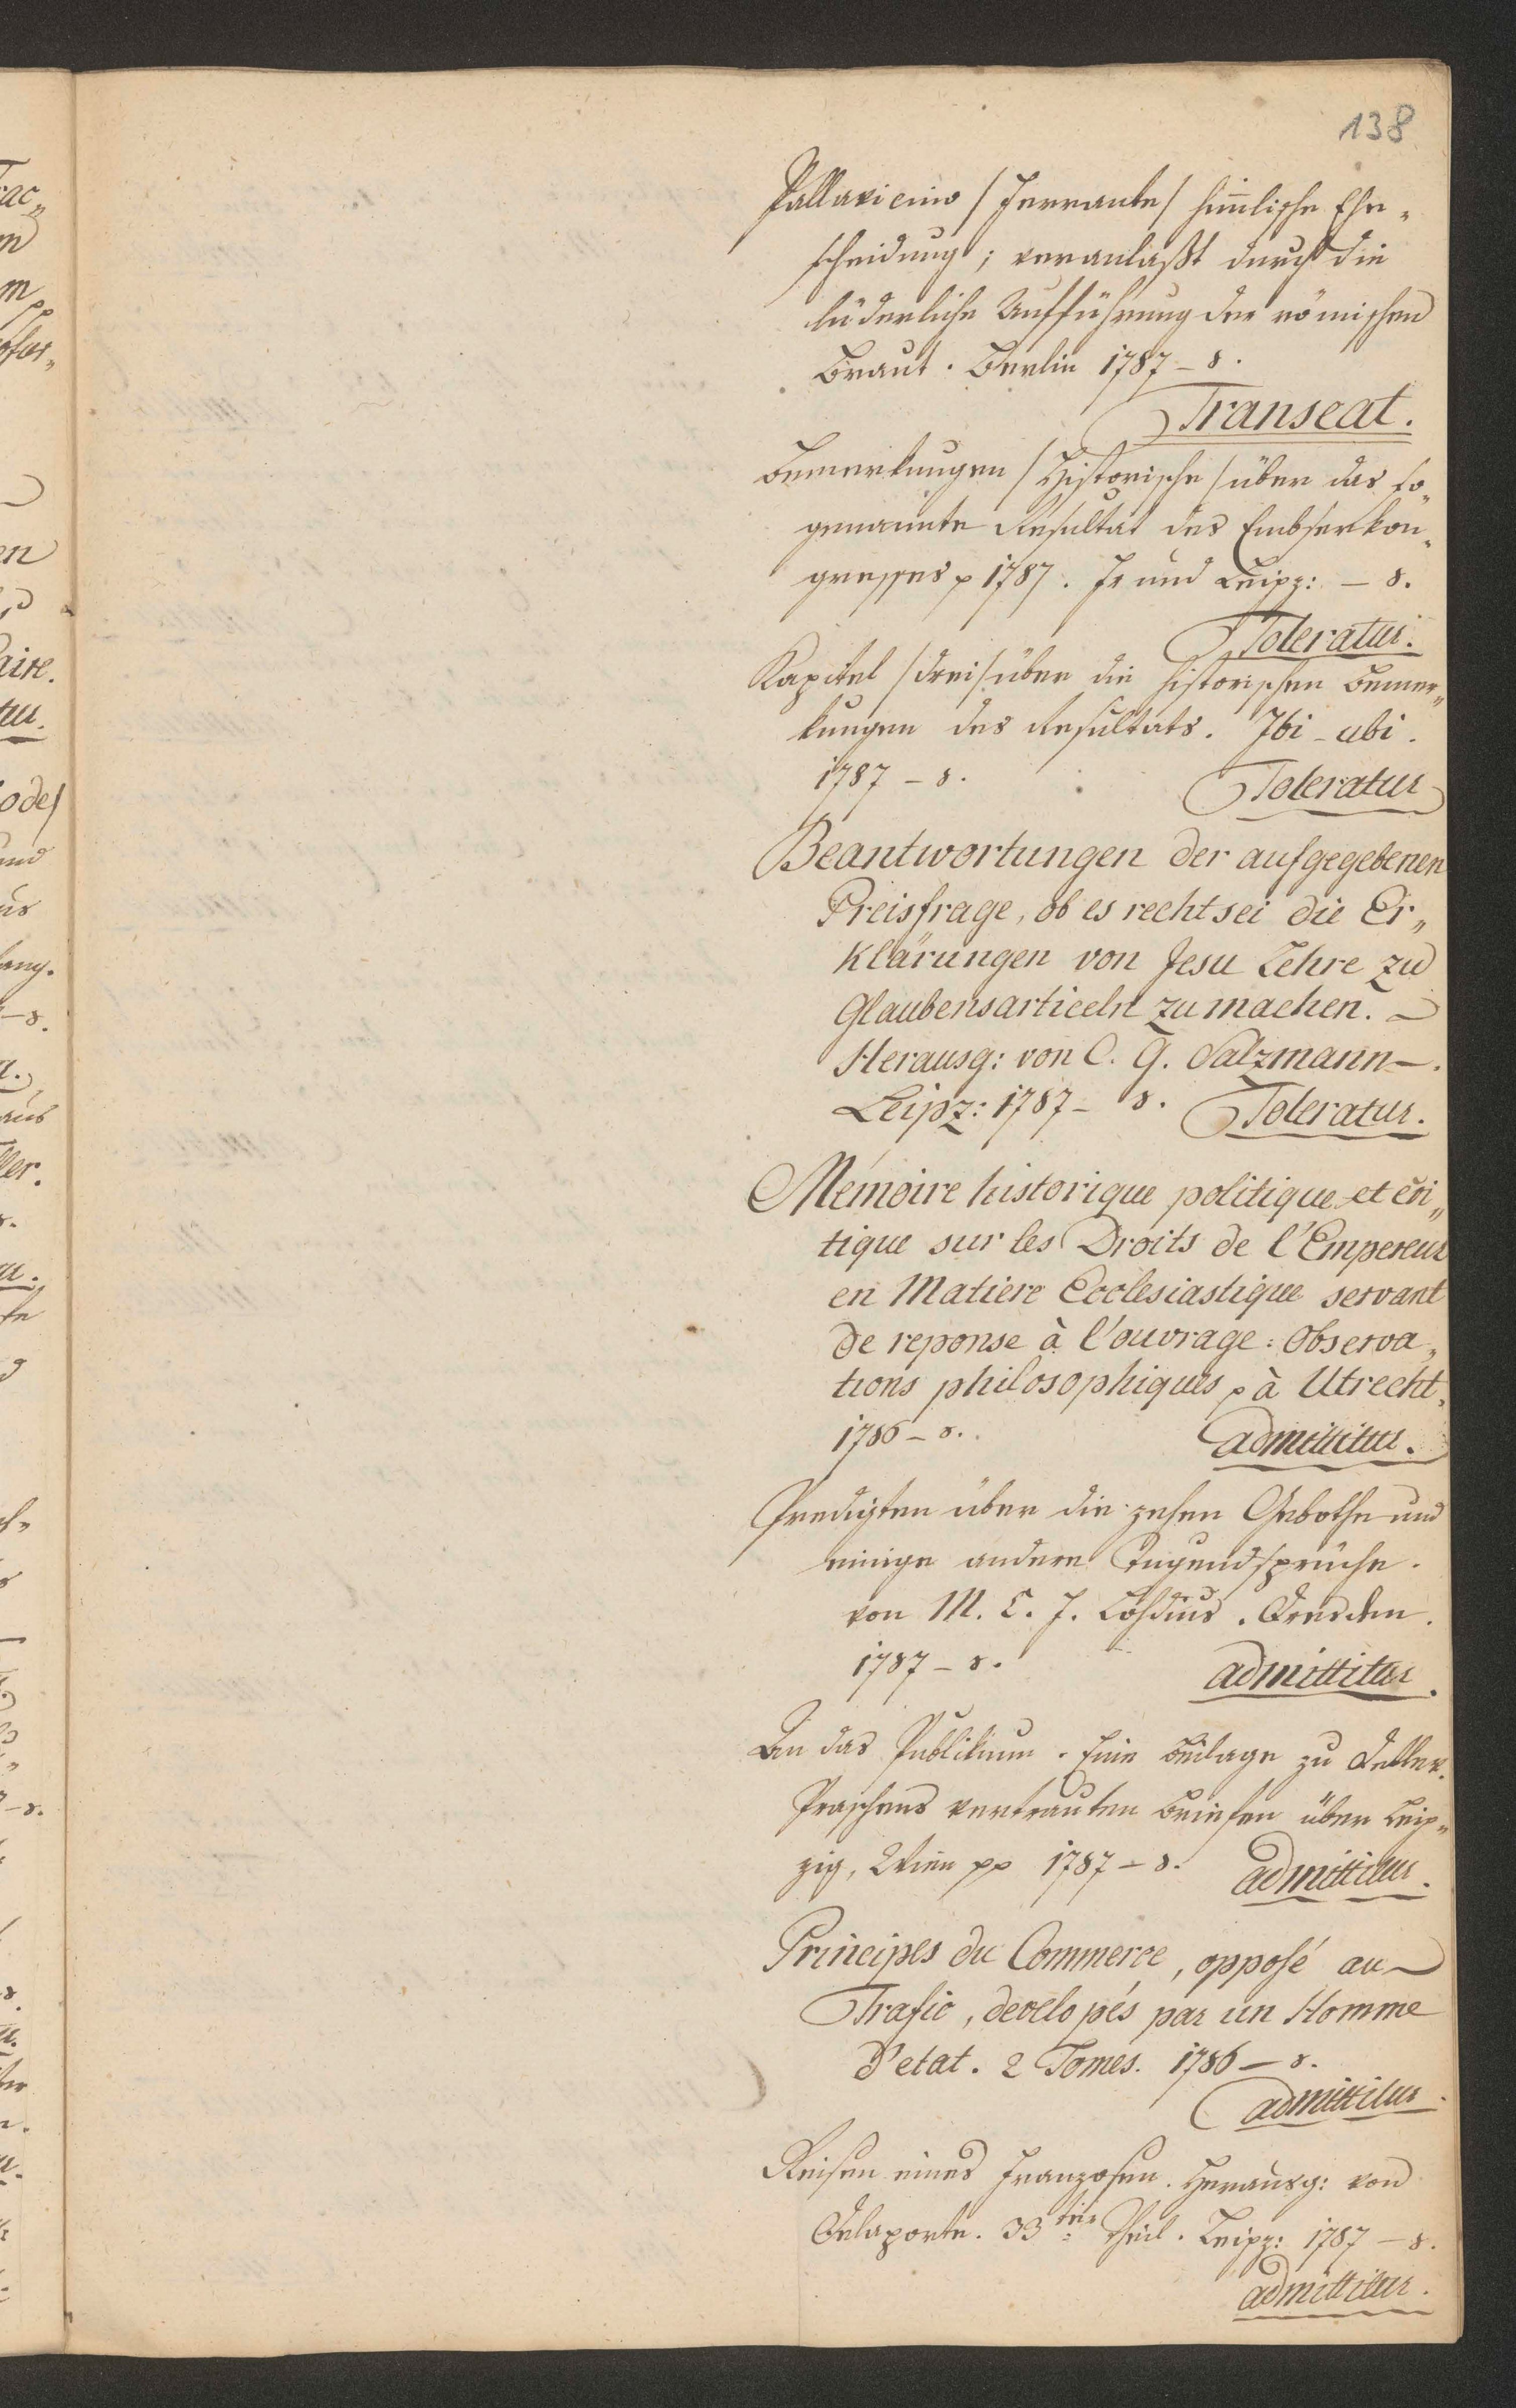 138
Pallavicino /Ferrante/ him̅lische Ehe„
scheidung; veranlaßt durch die
lüderliche Aufführung der römischen
Braut. Berlin 1787 – 8.
Transeat.
Bemerkungen /Historische/ über das so„
genannte Resultat des Embserkon„
gresses p 1787. Fr und Leipz: – 8.
Toleratur.
Kapitel /drei/ über die historischen Bemer„
kungen des Resultats. Ibi – ubi.
1787 – 8.
Toleratur
Beantwortungen der aufgegebenen
Preisfrage, ob es recht sei die Er„
klärungen von Jesu Lehre zu
Glaubensarticeln zu machen. –
Herausg: von C. G. Salzmann –.
Leipz: 1787 – 8. Toleratur.
Mémoire historique politique et cri„
tique sur les Droits de l'Empereur
en Matiere Ecclesiastique servant
de reponse à l'ouvrage: Observa„
tions philosophiques p à Utrecht,
1786 – 8. admittitur.
Predigten über die zehen Gebothe und
einige andere Tugendsprüche.
von M. C. F. Lohdius. Dresden.
1787 – 8. admittitur.
An das Publikum. Eine Beilage zu Deller.
Praschens vertrauten Briefen über Leip„
zig, Wien pp 1787 – 8. admittitur.
Principes du Commerce, opposé au
Trafic, developés par un Homme
d'etat. 2 Tomes. 1786 – 8.
admittitur.
Reisen eines Franzosen. Herausg: von
Delaporte. 33ter Theil. Leipz: 1787 – 8.
admittitur.